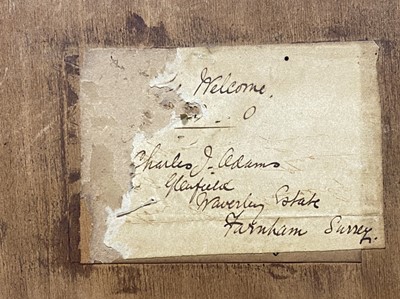 Welcome.
Charles J. Adams
Glenfield
Waverley Estate
Farnham Surrey.